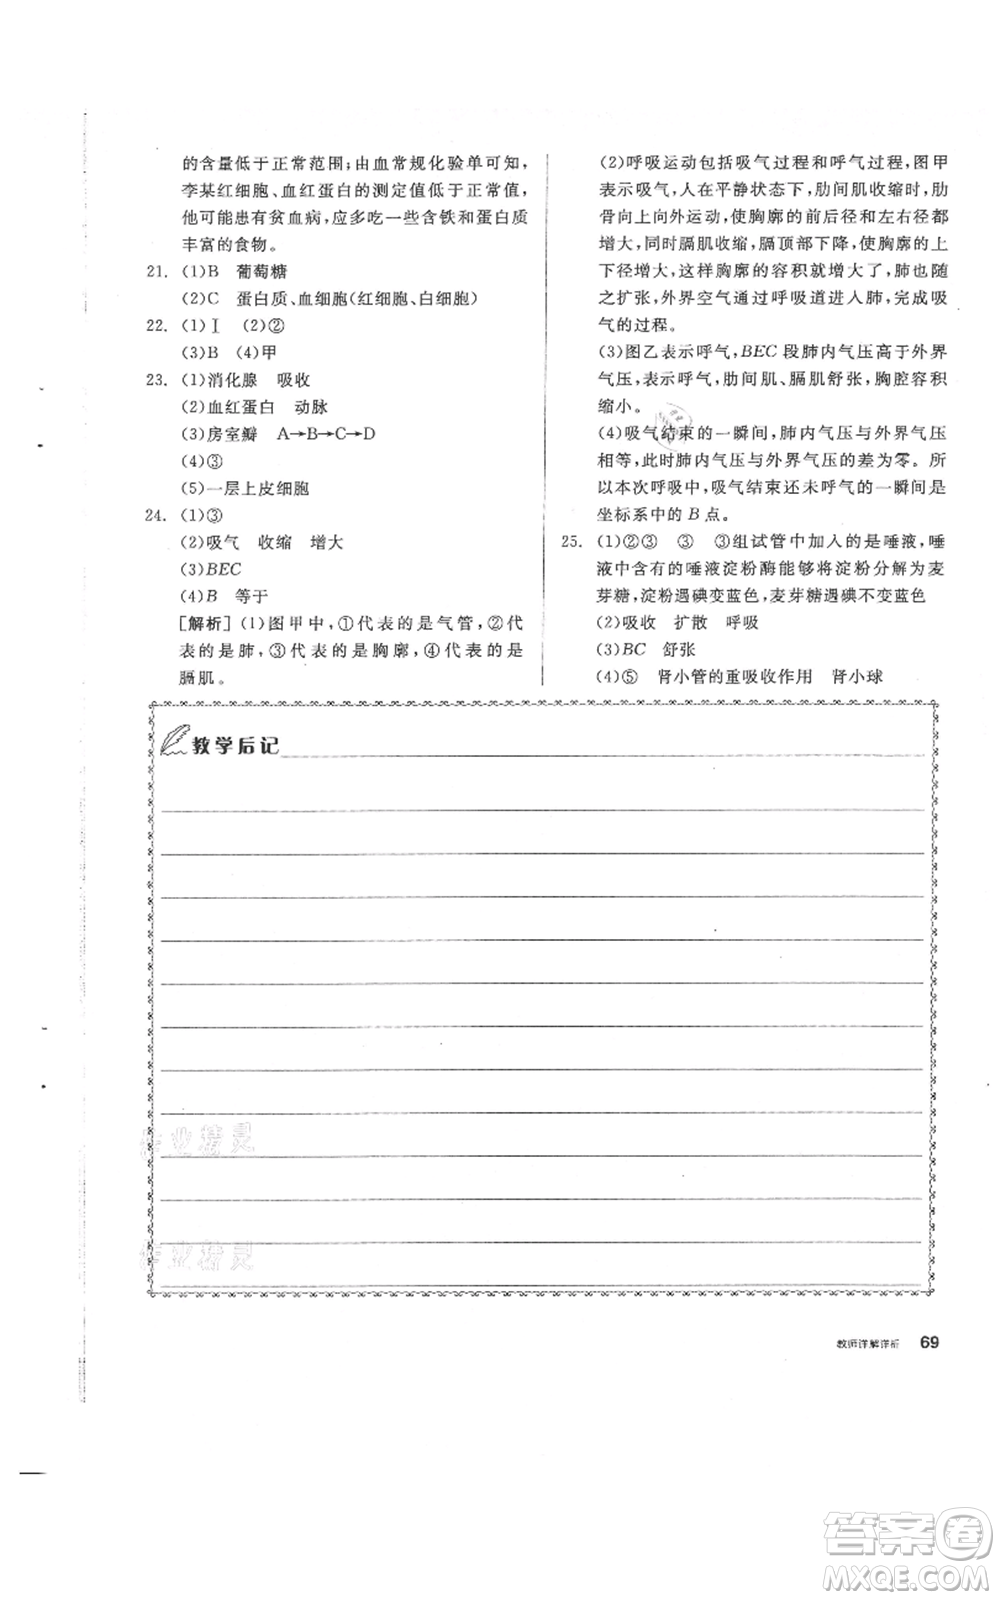 的含量低于正常范围;由血常规化验单可知,
李某红细胞、血红蛋白的测定值低于正常值,
他可能患有贫血病,应多吃一些含铁和蛋白质
丰富的食物。
21. (1)B 葡萄糖
(2)C 蛋白质、血细胞(红细胞、白细胞)
22. (1)Ⅰ (2)②
(3)B (4)甲
23. (1)消化腺 吸收
(2)血红蛋白 动脉
(3)房室瓣 A→B→C→D
(4)③
(5)一层上皮细胞
24. (1)③
(2)吸气 收缩 增大
(3)BEC
(4)B 等于
[解析] (1)图甲中,①代表的是气管,②代
表的是肺,③代表的是胸廓,④代表的是
膈肌。
(2)呼吸运动包括吸气过程和呼气过程,图甲
表示吸气,人在平静状态下,肋间肌收缩时,肋
骨向上向外运动,使胸廓的前后径和左右径都
增大,同时膈肌收缩,膈顶部下降,使胸廓的上
下径增大,这样胸廓的容积就增大了,肺也随
之扩张,外界空气通过呼吸道进入肺,完成吸
气的过程。
(3)图乙表示呼气,BEC 段肺内气压高于外界
气压,表示呼气,肋间肌、膈肌舒张,胸腔容积
缩小。
(4)吸气结束的一瞬间,肺内气压与外界气压
相等,此时肺内气压与外界气压的差为零。所
以本次呼吸,吸气结束还未呼气的一瞬间是
坐标系中的 B 点。
25. (1)②③ ③ ③组试管中加入的是唾液,唾
液中含有的唾液淀粉酶能够将淀粉分解为麦
芽糖,淀粉遇碘变蓝色,麦芽糖遇碘不变蓝色
(2)吸收 扩散 呼吸
(3)BC 舒张
(4)⑤ 肾小管的重吸收作用 肾小球
教学后记
作业精灵
作业精灵
教师详解详析 69
答案卷
MXQE.COM